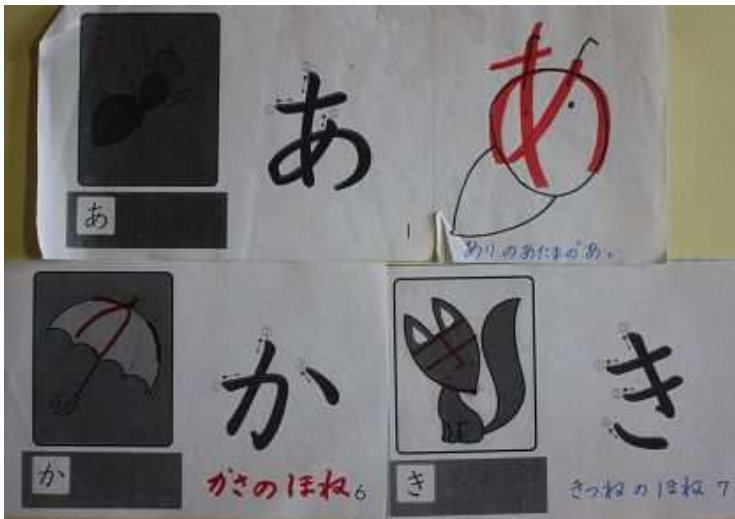 あ
あ
あ
1
ありのあたまがあ。
か
か
かさのほね 6
き
き
きつねのほね 7